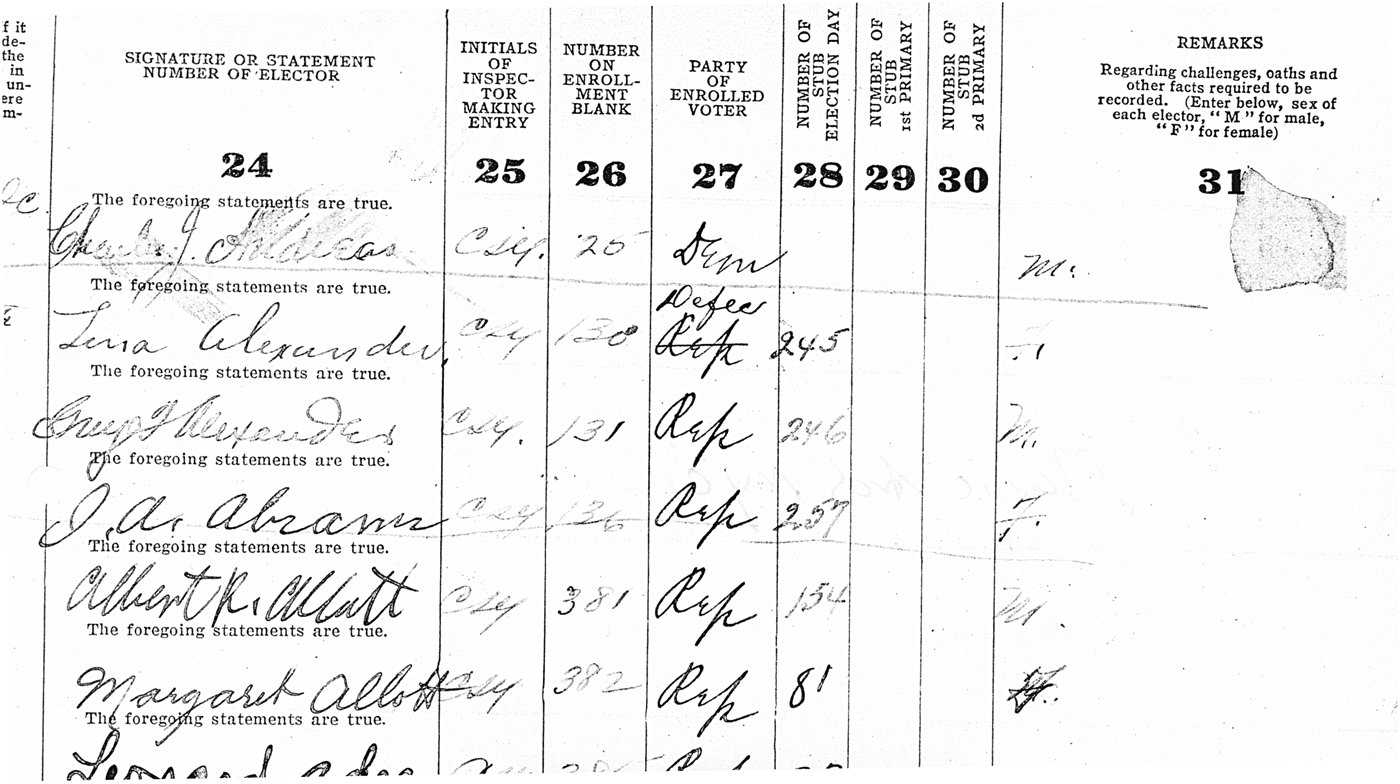 f it
de-
the
in
un-
ere
m-
SIGNATURE OR STATEMENT
NUMBER OF ELECTOR
24
INITIALS
OF
INSPEC-
TOR
MAKING
ENTRY
25
NUMBER
ON
ENROLL-
MENT
BLANK
26
PARTY
OF
ENROLLED
VOTER
27
NUMBER OF
STUB
ELECTION DAY
28
NUMBER OF
STUB
1st PRIMARY
29
NUMBER OF
STUB
2d PRIMARY
30
REMARKS
Regarding challenges, oaths and
other facts required to be
recorded. (Enter below, sex of
each elector, "M" for male,
"F" for female)
31
The foregoing statements are true.
Charles J. Andreas CSY. 25 Dem M.
The foregoing statements are true.
Defec
Lena Alexander CSY 130 Rep 245 F
The foregoing statements are true.
Alexander CSY. 131 Rep 246 M.
The foregoing statements are true.
J. A. Abrams CSY 136 Rep 257 F.
The foregoing statements are true.
Albert R. Allott CSY 381 Rep 154 M.
The foregoing statements are true.
Margaret Allott CSY 382 Rep 81 F.
The foregoing statements are true.
Leonard